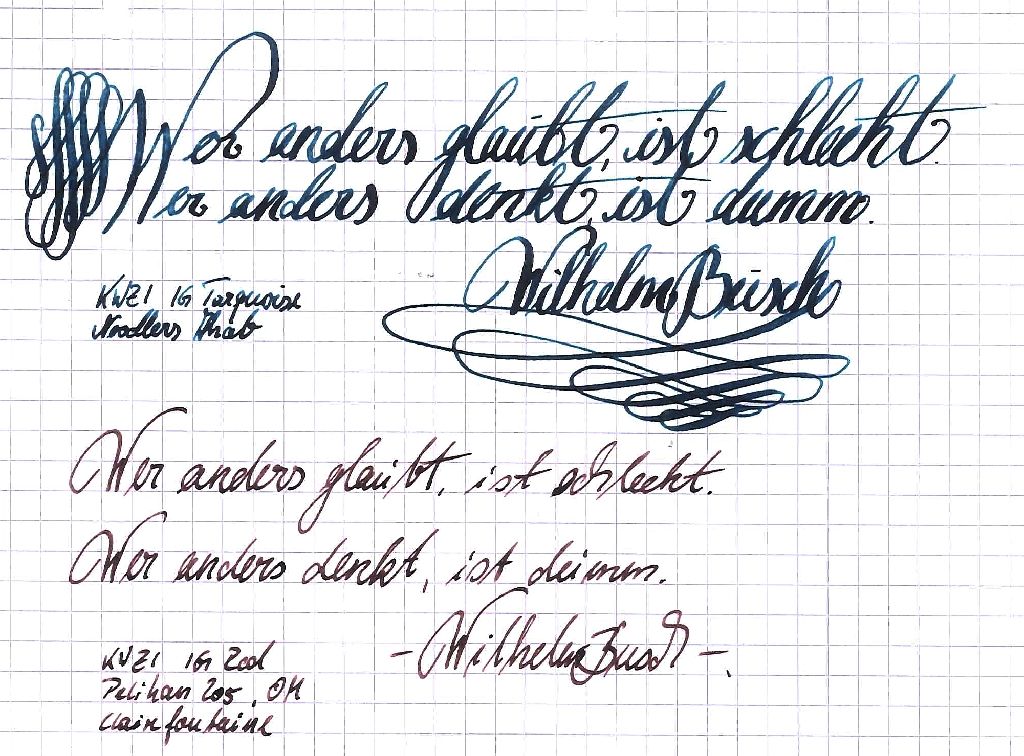 Wer anders glaubt, ist schlecht.
Wer anders denkt, ist dumm.
Wilhelm Busch
KWZI IG Turquoise
Noodlers Ahab
Wer anders glaubt, ist schlecht.
Wer anders denkt, ist dumm.
- Wilhelm Busch -.
KWZI IG
Pelikan 205, OM
Clairefontaine